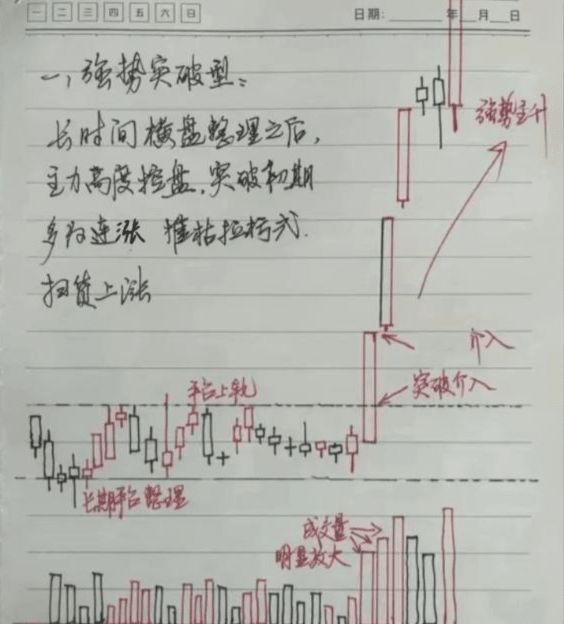 一 二 三 四 五 六 日
日期: 年 月 日
一、强势突破型：
长时间横盘整理之后，
主力高度控盘，突破初期
多为连涨 摧枯拉朽式
扫货上涨
强势主升
介入
突破介入
平台上轨
长期平台整理
成交量
明显放大